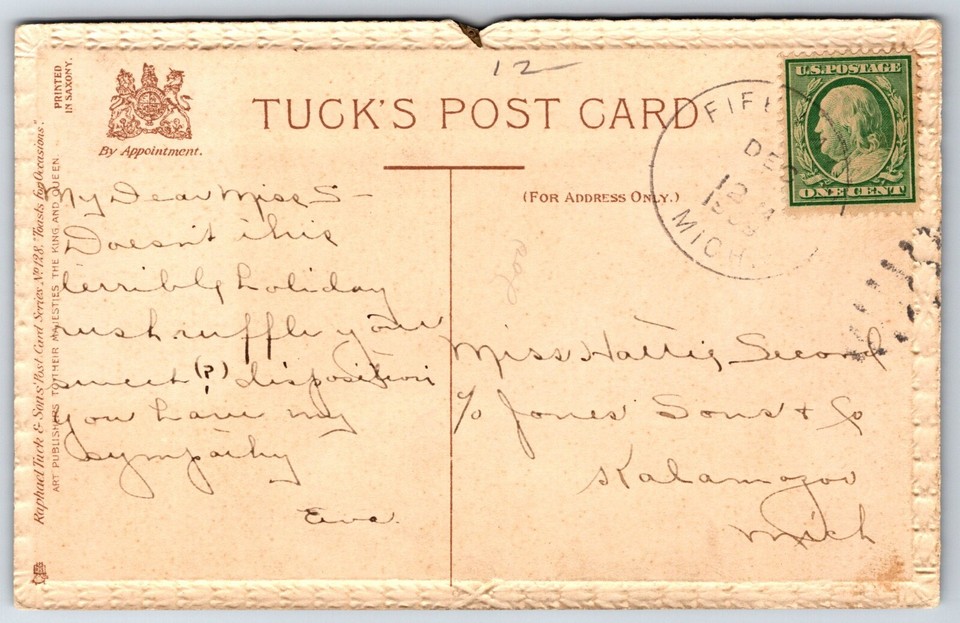 12
PRINTED
IN SAXONY.
By Appointment.
TUCK'S POST CARD
(FOR ADDRESS ONLY.)
U.S. POSTAGE
ONE CENT
FIFE
DEC
MICH.
Raphael Tuck & Sons' Post Card Series No 128. "Toasts for Occasions".
ART PUBLISHERS TO THEIR MAJESTIES THE KING AND QUEEN.
My Dear Miss S-
Doesn't this
terribly holiday
rush ruffle your
sweet (?) disposition
you have my
sympathy
Eva.
Miss Hattie Secord
c/o Jones' Sons & Co
Kalamazoo
Mich